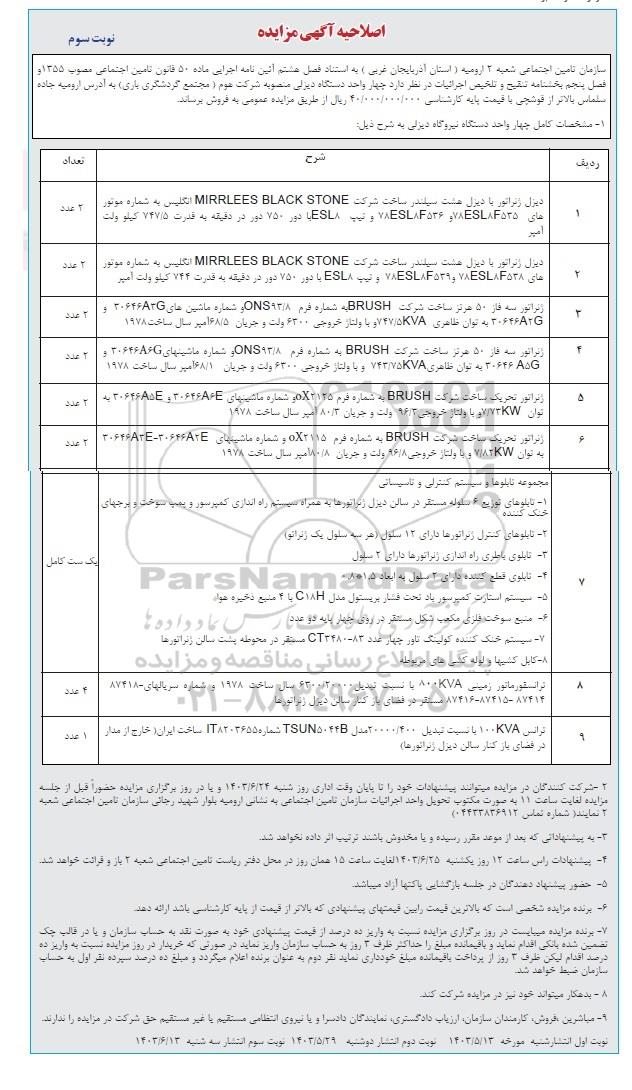 اصلاحیه آگهی مزایده
نوبت سوم
سازمان تامین اجتماعی شعبه ۲ ارومیه ( استان آذربایجان غربی ) به استناد فصل هشتم آئین نامه اجرایی ماده ۵۰ قانون تامین اجتماعی مصوب ۱۳۵۵و
فصل پنجم بخشنامه تنقیح و تلخیص اجرائیات در نظر دارد چهار واحد دستگاه دیزلی منصوبه شرکت هوم ( مجتمع گردشگری باری) به آدرس ارومیه جاده
سلماس بالاتر از قوشچی با قیمت پایه کارشناسی ۴۰/۰۰۰/۰۰۰/۰۰۰ ریال از طریق مزایده عمومی به فروش برساند.
۱- مشخصات کامل چهار واحد دستگاه نیروگاه دیزلی به شرح ذیل:
ردیف شرح تعداد
۱ دیزل ژنراتور با دیزل هشت سیلندر ساخت شرکت MIRRLEES BLACK STONE انگلیس به شماره موتور ۲ عدد
های ۷۸ESL۸F۵۳۵و ۷۸ESL۸F۵۳۶ و تیپ ESL۸با دور ۷۵۰ دور در دقیقه به قدرت ۷۴۷/۵ کیلو ولت
آمپر
۲ دیزل ژنراتور با دیزل هشت سیلندر ساخت شرکت MIRRLEES BLACK STONE انگلیس به شماره موتور ۲ عدد
های ۷۸ESL۸F۵۳۸ و۷۸ESL۸F۵۳۹ و تیپ ESL۸ با دور ۷۵۰ دور در دقیقه به قدرت ۷۴۴ کیلو ولت آمپر
۳ ژنراتور سه فاز ۵۰ هرتز ساخت شرکت BRUSHبه شماره فرم ONS۹۳/۸و شماره ماشین های۳۰۶۴۶A۳G و ۲ عدد
۳۰۶۴۶A۲G به توان ظاهری ۷۴۷/۵KVAو با ولتاژ خروجی ۶۳۰۰ ولت و جریان ۶۸/۵آمپر سال ساخت۱۹۷۸
۴ ژنراتور سه فاز ۵۰ هرتز ساخت شرکت BRUSH به شماره فرم ONS۹۳/۸و شماره ماشینهای۳۰۶۴۶A۶G و ۲ عدد
۳۰۶۴۶ A۵G به توان ظاهری۷۴۳/۷۵KVA و با ولتاژ خروجی ۶۳۰۰ ولت و جریان ۶۸/۱آمپر سال ساخت ۱۹۷۸
۵ ژنراتور تحریک ساخت شرکت BRUSH به شماره فرم oX۲۱۲۵و شماره ماشینهای ۳۰۶۴۶A۶E و ۳۰۶۴۶A۵E به ۲ عدد
توان ۷/۷۳KWو با ولتاژ خروجی۹۶/۳ ولت و جریان ۸۰/۳ آمپر سال ساخت ۱۹۷۸
۶ ژنراتور تحریک ساخت شرکت BRUSH به شماره فرم oX۲۱۱۵ و شماره ماشینهای ۳۰۶۴۶A۳E-۳۰۶۴۶A۲E ۲ عدد
به توان ۷/۸۲KW و با ولتاژ خروجی۹۶/۸ ولت و جریان ۸۰/۸آمپر سال ساخت ۱۹۷۸
مجموعه تابلوها و سیستم کنترلی و تاسیساتی
۱- تابلوهای توزیع ۶ سلوله مستقر در سالن دیزل ژنراتورها به همراه سیستم راه اندازی کمپرسور و پمپ سوخت و برجهای
خنک کننده
۲- تابلوهای کنترل ژنراتورها دارای ۱۲ سلول (هر سه سلول یک ژنراتو)
۳- تابلوی باطری راه اندازی ژنراتورها دارای ۲ سلول
۷ ۴- تابلوی قطع کننده دارای ۲ سلول به ابعاد ۱,۵*۰,۸ یک ست کامل
۵- سیستم استارت کمپرسور باد تحت فشار بریستول مدل C۱۸H با ۴ منبع ذخیره هوا
۶- منبع سوخت فلزی مکعب شکل مستقر در روی چهار پایه دو عدد
۷- سیستم خنک کننده کولینگ تاور چهار عدد CT۳۴۸۰-۸۳ مستقر در محوطه پشت سالن ژنراتورها
۸-کابل کشیها و لوله کشی های مربوطه
۸ ترانسفورماتور زمینی ۸۰۰KVA با نسبت تبدیل۶۳۰۰/۲۰۰۰۰ سال ساخت ۱۹۷۸ و شماره سریالهای۸۷۴۱۸- ۴ عدد
۸۷۴۱۴ -۸۷۴۱۵-۸۷۴۱۶ مستقر در فضای باز کنار سالن دیزل ژنراتورها
۹ ترانس ۱۰۰KVA با نسبت تبدیل ۲۰۰۰۰/۴۰۰مدل TSUN۵۰۴۴B شمارهIT۸۲۰۳۶۵۵ ساخت ایران( خارج از مدار ۱ عدد
در فضای باز کنار سالن دیزل ژنراتورها)
ParsNamadData
پایگاه اطلاع رسانی مناقصه و مزایده
۲ -شرکت کنندگان در مزایده میتوانند پیشنهادات خود را تا پایان وقت اداری روز شنبه ۱۴۰۳/۶/۲۴ و یا در روز برگزاری مزایده حضوراً قبل از جلسه
مزایده لغایت ساعت ۱۱ به صورت مکتوب تحویل واحد اجرائیات سازمان تامین اجتماعی به نشانی ارومیه بلوار شهید رجائی سازمان تامین اجتماعی شعبه
۲ نمایند( شماره تماس ۰۴۴۳۳۸۳۶۹۱۲)
۳- به پیشنهاداتی که بعد از موعد مقرر رسیده و یا مخدوش باشند ترتیب اثر داده نخواهد شد.
۴- پیشنهادات راس ساعت ۱۲ روز یکشنبه ۱۴۰۳/۶/۲۵لغایت ساعت ۱۵ همان روز در محل دفتر ریاست تامین اجتماعی شعبه ۲ باز و قرائت خواهد شد.
۵- حضور پیشنهاد دهندگان در جلسه بازگشایی پاکتها آزاد میباشد.
۶- برنده مزایده شخصی است که بالاترین قیمت رابین قیمتهای پیشنهادی که بالاتر از قیمت از پایه کارشناسی باشد ارائه دهد.
۷- برنده مزایده میبایست در روز برگزاری مزایده نسبت به واریز ده درصد از قیمت پیشنهادی خود به صورت نقد به حساب سازمان و یا در قالب چک
تضمین شده بانکی اقدام نماید و باقیمانده مبلغ را حداکثر ظرف ۳ روز به حساب سازمان واریز نماید در صورتی که خریدار در روز مزایده نسبت به واریز ده
درصد اقدام لیکن ظرف ۳ روز از پرداخت باقیمانده مبلغ خودداری نماید نفر دوم به عنوان برنده اعلام میگردد و مبلغ ده درصد سپرده نفر اول به حساب
سازمان ضبط خواهد شد.
۸ - بدهکار میتواند خود نیز در مزایده شرکت کند.
۹- مباشرین ،فروش، کارمندان سازمان، ارزیاب دادگستری، نمایندگان دادسرا و یا نیروی انتظامی مستقیم یا غیر مستقیم حق شرکت در مزایده را ندارند.
نوبت اول انتشارشنبه مورخه ۱۴۰۳/۵/۱۳ نوبت دوم انتشار دوشنبه ۱۴۰۳/۵/۲۹ نوبت سوم انتشار سه شنبه ۱۴۰۳/۶/۱۳